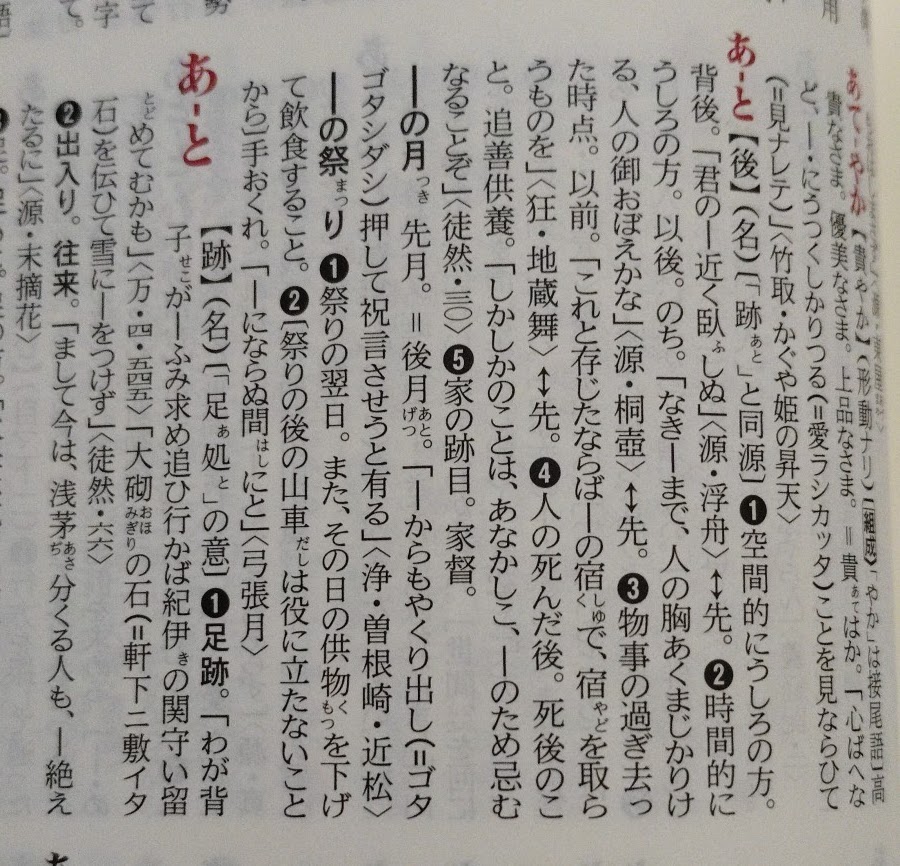 あてーやか【貴やか】(形動ナリ)〔組成〕「やか」は接尾語〕高
貴なさま。優美なさま。上品なさま。＝貴ぁてはか。「心ばへな
ど、―・にうつくしかりつる(＝愛ラシカッタ)ことを見ならひて
(＝見ナレテ)」〈竹取・かぐや姫の昇天〉
あ-と【後】(名)〔「跡ぁと」と同源〕❶空間的にうしろの方。
背後。「君の―近く臥ふしぬ」〈源・浮舟〉↔先。❷時間的に
うしろの方。以後。のち。「なき―まで、人の胸あくまじかりけ
る、人の御おぼえかな」〈源・桐壺〉↔先。❸物事の過ぎ去っ
た時点。以前。「これと存じたならば―の宿しゅくで、宿やどを取ら
うものを」〈狂・地蔵舞〉↔先。❹人の死んだ後。死後のこ
と。追善供養。「しかしかのことは、あなかしこ、―のため忌む
なることぞ」〈徒然・三〇〉❺家の跡目。家督。
―の月つき 先月。＝後月あとげつ。「―からもやくり出し(＝ゴタ
ゴタシダシ)押して祝言させうと有る」〈浄・曽根崎・近松〉
―の祭まつり ❶祭りの翌日。また、その日の供物くもつを下げ
て飲食すること。❷〔祭りの後の山車だしは役に立たないこと
から〕手おくれ。「―にならぬ間はしにと」〈弓張月〉
あ-と【跡】(名)〔「足ぁ処と」の意〕❶足跡。「わが背
子せこが―ふみ求め追ひ行かば紀伊きの関守い留
とどめてむかも」〈万・四・五四五〉「大砌おほみぎりの石(＝軒下ニ敷イタ
石)を伝ひて雪に―をつけず」〈徒然・六六〉
❷出入り。往来。「まして今は、浅茅あさぢ分くる人も、―絶え
たるに」〈源・末摘花〉